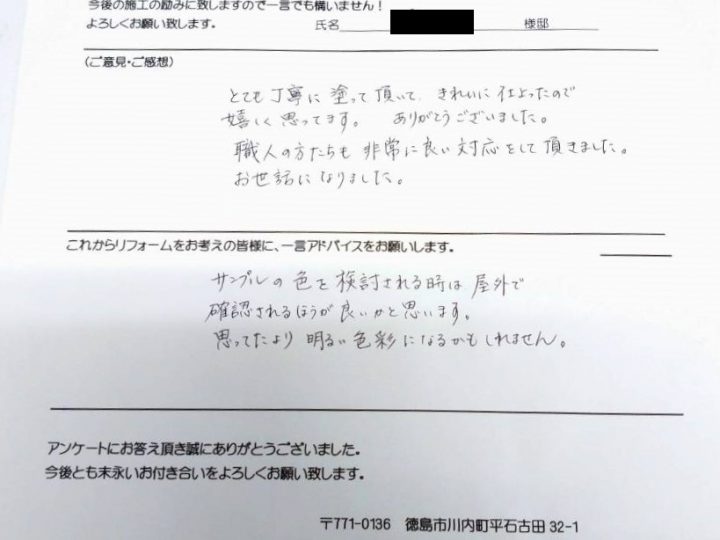 今後の施工の励みに致しますので一言でも構いません！
よろしくお願い致します。 氏名 様邸
（ご意見・ご感想）
とても丁寧に塗って頂いて、きれいに仕上ったので
嬉しく思ってます。 ありがとうございました。
職人の方たちも非常に良い対応をして頂きました。
お世話になりました。
これからリフォームをお考えの皆様に、一言アドバイスをお願いします。
サンプルの色を検討される時は屋外で
確認されるほうが良いかと思います。
思ってたより明るい色彩になるかもしれません。
アンケートにお答え頂き誠にありがとうございました。
今後とも末永いお付き合いをよろしくお願い致します。
〒771-0136 徳島市川内町平石古田 32-1